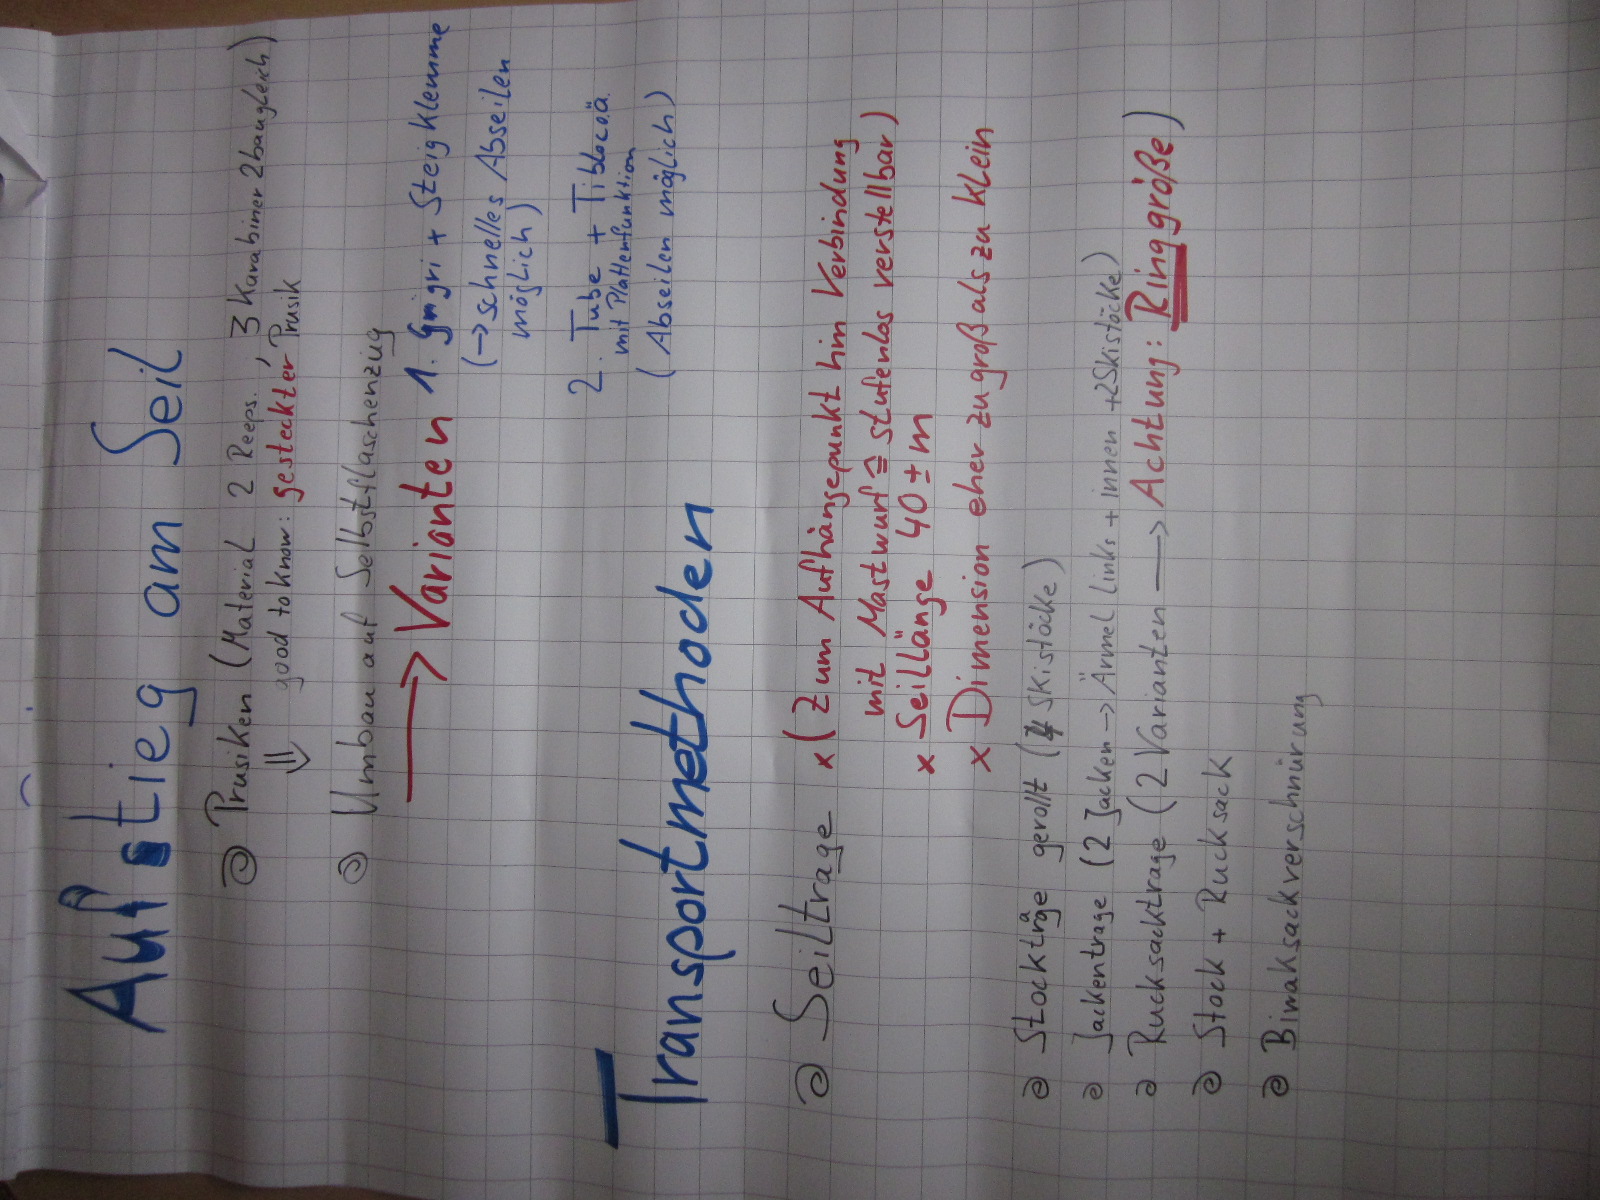 Aufstieg am Seil
Prusiken (Material 2 Reeps., 3 Karabiner 2 baugleich)
good to know: gesteckter Prusik
Umbau auf Selbstflaschenzug
→ Varianten 1. Grigri + Steigklemme
(→ schnelles Abseilen
möglich)
2. Tube + Tiblocoä.
mit Plattenfunktion
(Abseilen möglich)
Transportmethoden
Seiltrage x (Zum Aufhängepunkt hin Verbindung
mit Mastwurf ≙ stufenlos verstellbar)
x Seillänge 40 ± m
x Dimension eher zu groß als zu klein
Stockträge gerollt (4 Skistöcke)
Jackentrage (2 Jacken → Ärmel Links + innen + 2 Skistöcke)
Rucksacktrage (2 Varianten → Achtung: Ringgröße)
Stock + Rucksack
Biwaksackverschnürung